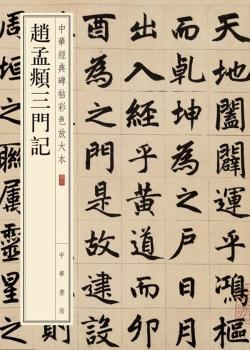 趙孟頫三門記
中華經典碑帖彩色放大本
中華書局
乎鴻樞
而乾坤為之戶日月
出入經乎黃道而卯
酉為之門是故建設
周垣之聯屬靈星之